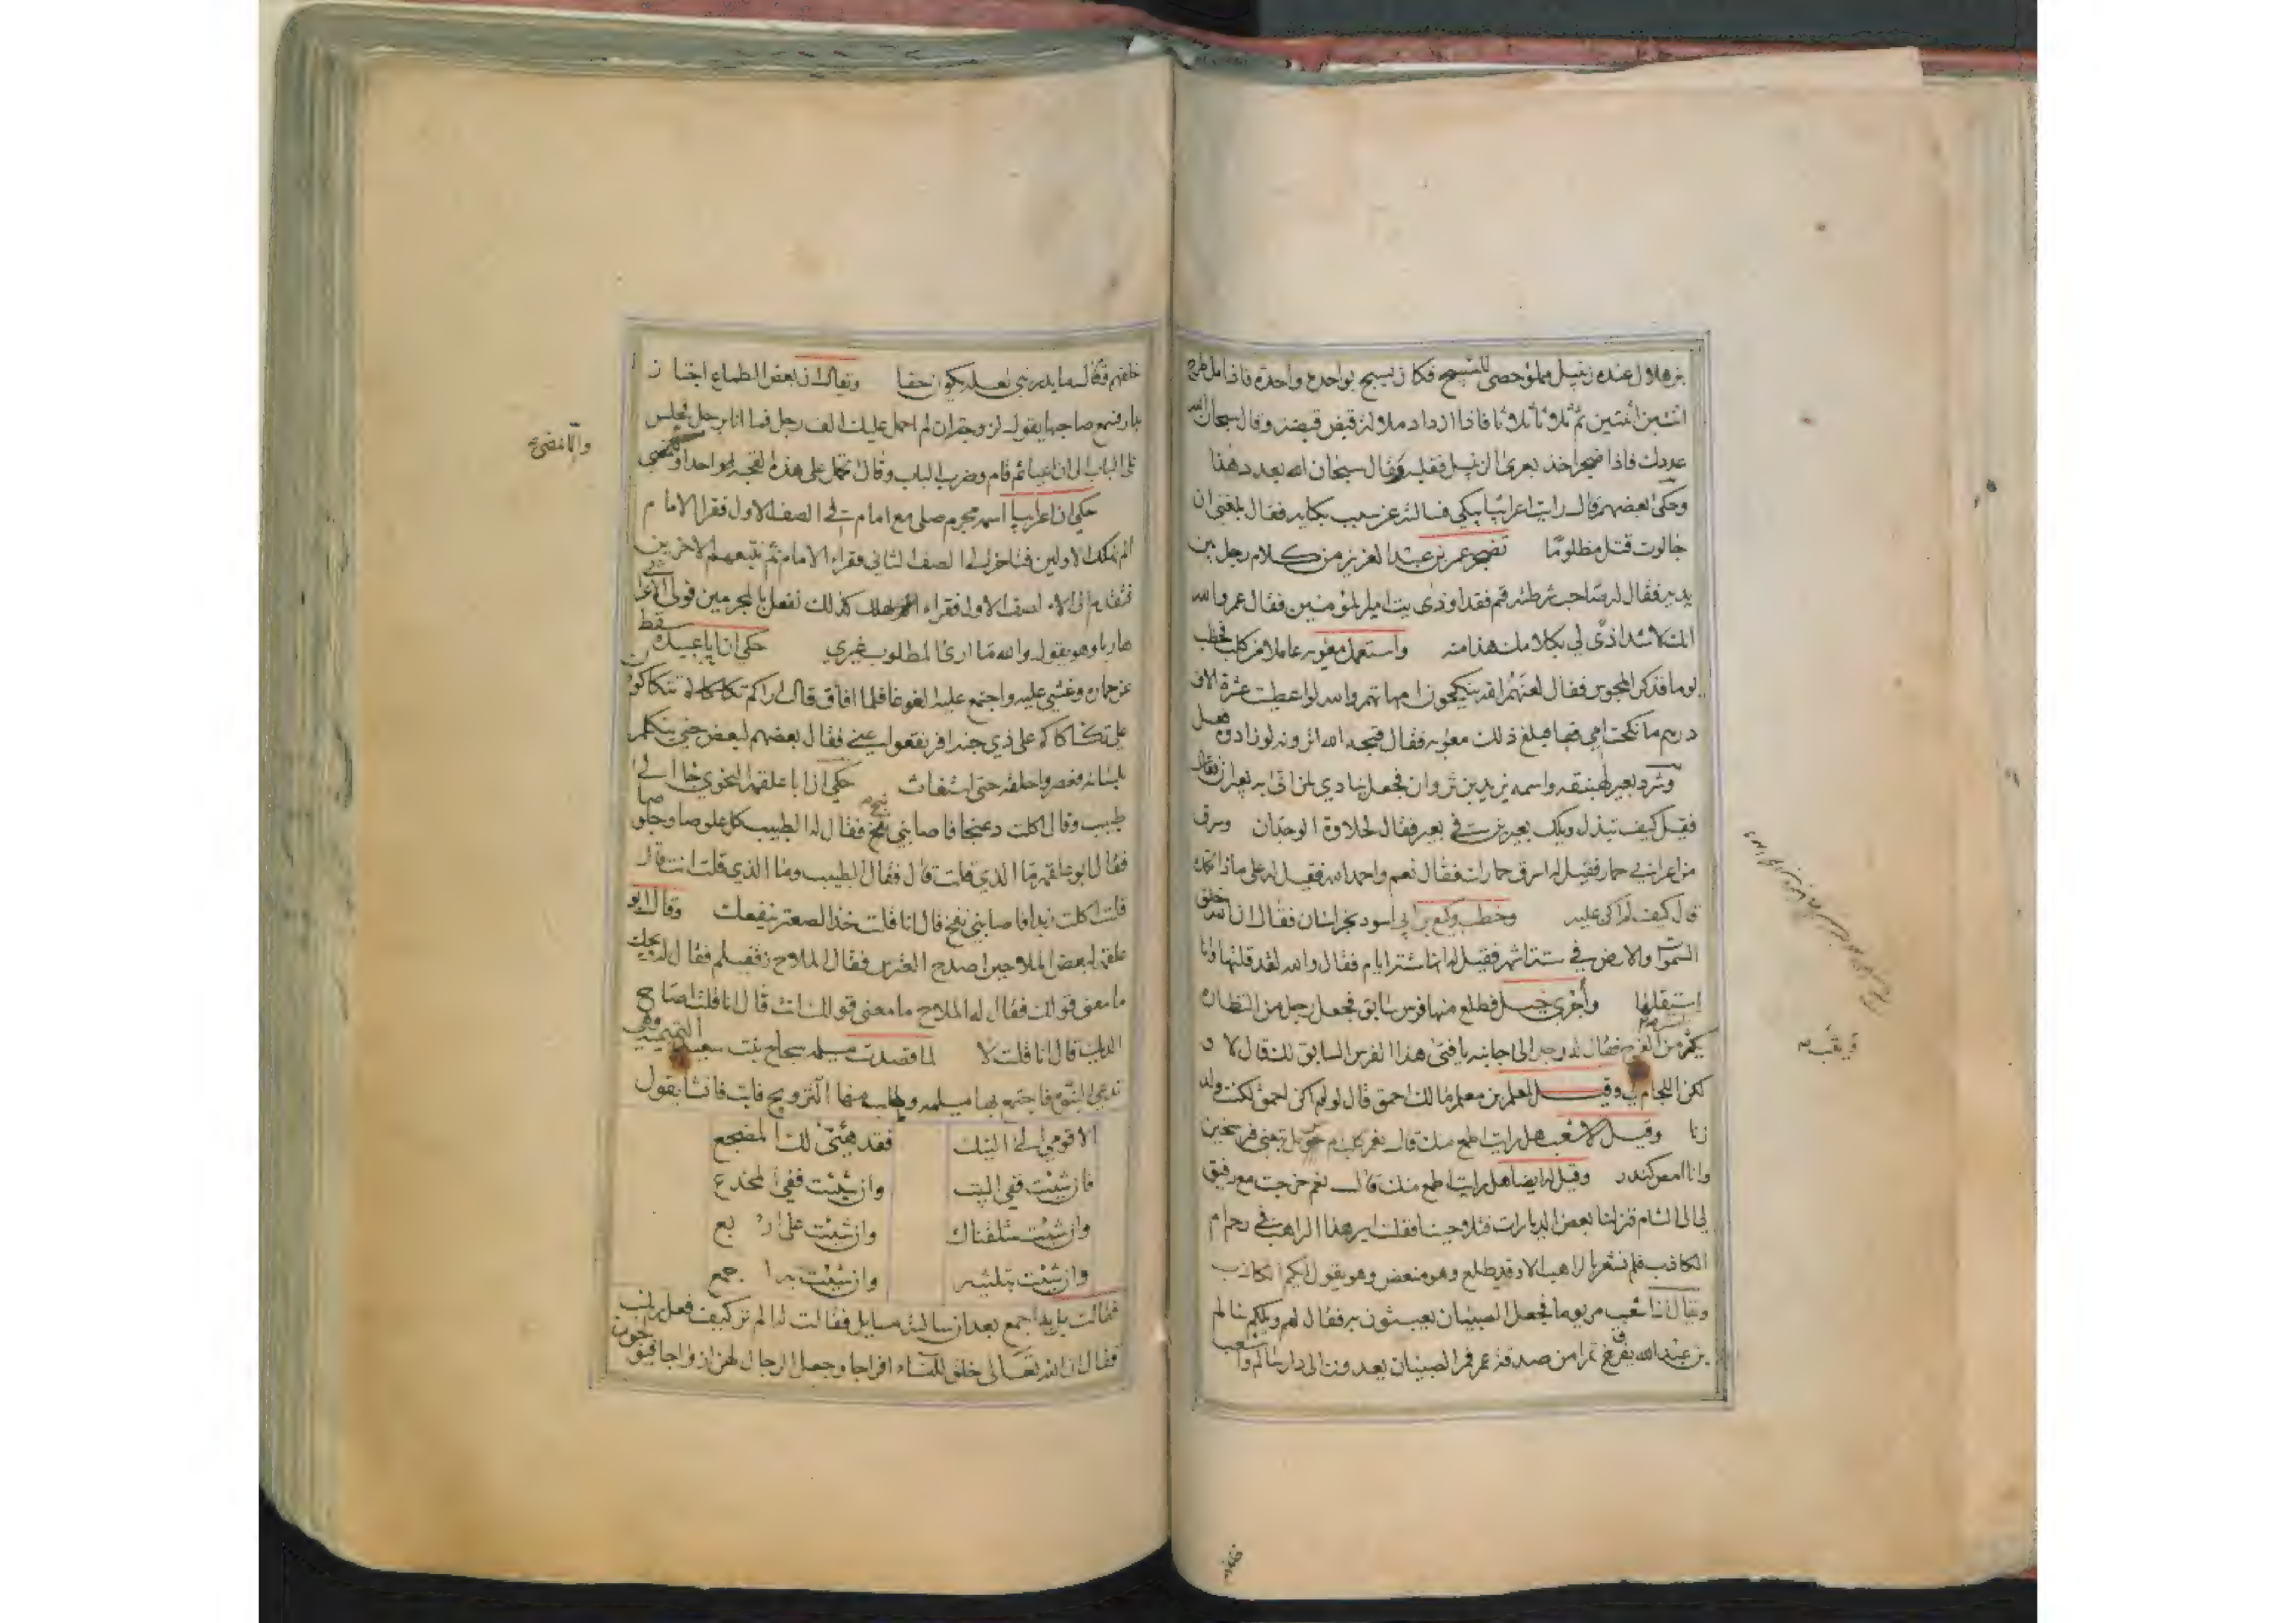 بن هلال عنده زنبيل مملو حصى للتسبيح فكان يسبح بواحدة واحدة فاذا مل طرح
اثنتين اثنتين ثم ثلاثا ثلاثا فاذا ازداد ملالا قبض قبضة وقال سبحان الله
عددك فاذا ضجر اخذ بعرى الزنبيل فقلبه وقال سبحان الله بعدد هذا
وحكى بعضهم قال رايت اعرابيا يبكي فسالته عن سبب بكايه فقال بلغني ان
جالوت قتل مظلوما تضجر عمر بن عبد العزيز من كلام رجل بين
يديه فقال له صاحب شرطته قم فقد اوذى بيت امير المؤمنين فقال عمر والله
انك لاشد اذى لي بكلامك هذا منه واستعمل معوية عاملا من كلب فخطب
يوما فذكر المجوس فقال لعنهم الله ينكحون امهاتهم والله لو اعطيت عشرة الاف
درهم ما نكحت امي فبلغ ذلك معوية فقال قبحه الله اترونه لو زادوه فعل
وشرد بعير لهبنقة واسمه يزيد بن ثروان فجعل ينادي لمن اتى به بعيران فقال
فقيل كيف تبذل ويلك بعيرين في بعير فقال لحلاوة الوجدان وسرق
من اعرابي حمار فقيل له اسرق حمارك فقال نعم واحمد الله فقيل له على ماذا تحمده
قال كيف لم اكن عليه وخطب وكيع بن ابي اسود بخراسان فقال ان الله خلق
السموات والارض في ستة اشهر فقيل له انها ستة ايام فقال والله لقد قلتها وانا
استقلها واجرى خيل فطلع منها فرس سابق فجعل رجل من النظارة
يكثر من الفرح فقال له رجل الى جانبه يا فتى هذا الفرس السابق لك قال لا و
لكن اللجام لي وقيل لمعلم بن معلم مالك احمق قال لو لم اكن احمق لكنت ولد
زنا وقيل لاشعب هل رايت اطمع منك قال نعم كلب ام حومل تبعني فرسخين
وانا امضغ كندر وقيل له ايضا هل رايت اطمع منك قال نعم خرجت مع رفيق
لي الى الشام فنزلنا بعض الديارات فتلاحينا فقلت اير هذا الراهب في رحم ام
الكاذب فلم نشعر بالراهب الا وقد طلع وهو منعض وهو يقول ايكم الكاذب
وقال ان اشعب مر يوما فجعل الصبيان يعبثون به فقال لهم ويلكم سالم
بن عبد الله يفرق تمرا من صدقة عمر فمر الصبيان يعدون الى دار سالم واشعب
خلفهم وقال ما يدريني لعله يكون حقا وتعال ان بعض الطماع اجتاز
بدار فسمع صاحبها يقول لزوجته ان لم احمل عليك الف رجل فما انا برجل فجلس
على الباب الى ان اعيا ثم قام وضرب الباب وقال تحمل على هذه القحبة واحدا ونمضي
حكي ان اعرابيا اسمه مجرم صلى مع امام في الصف الاول فقرا الامام
الم نهلك الاولين فتاخر الى الصف الثاني فقراء الامام ثم نتبعهم الاخرين
فتقدم الى الصف الاول فقراء كذلك نفعل بالمجرمين فولى الاعرابي
هاربا وهو يقول والله ما ارى المطلوب غيري حكي ان ابا عبيدة سقط
عن حماره وغشي عليه واجتمع عليه الغوغا فلما افاق قال اراكم تتكاكون
علي تكاكاكم على ذي جنة افرنقعوا عني فقال بعضهم لبعض جني يتكلم
بلسانه فعصروا حلقه حتى استغاث حكي ان ابا علقمة النحوي جا الى
طبيب وقال اكلت دعنجا فاصابني نفخ فقال له الطبيب كل علوصا وخلوصا
فقال ابو علقمة ما الذي قلت قال فقال الطبيب وما الذي قلت انت قال
قلت اكلت زبدا فاصابني نفخ قال انا قلت خذ الصعتر ينفعك وقال ابو
علقمة لبعض الملاحين اصدح العترس فقال الملاح زقفيلم فقال له ويحك
ما معنى قولك فقال له الملاح ما معنى قولك انت قال انا قلت اصاح
الديك قال انا قلت لا لما قصدت مسيلمة سجاح بنت سعيد التميمية وهي
تدعي النبوة فاجتمع بها مسيلمة وطلب منها التزويج فابت فانشا يقول
الا قومي الى النيك فقد هيئ لك المضجع
فان شئت ففي البيت وان شئت ففي المخدع
وان شئت سلقناك وان شئت على اربع
وان شئت بثلثيه وان شئت به اجمع
فقالت بل به اجمع بعد ان سالته مسايل فقالت له الم تر كيف فعل ربك
فقال ان الله تعالى خلق للنساء افراجا وجعل الرجال لهن ازواجا فيولجون
والا نمضي